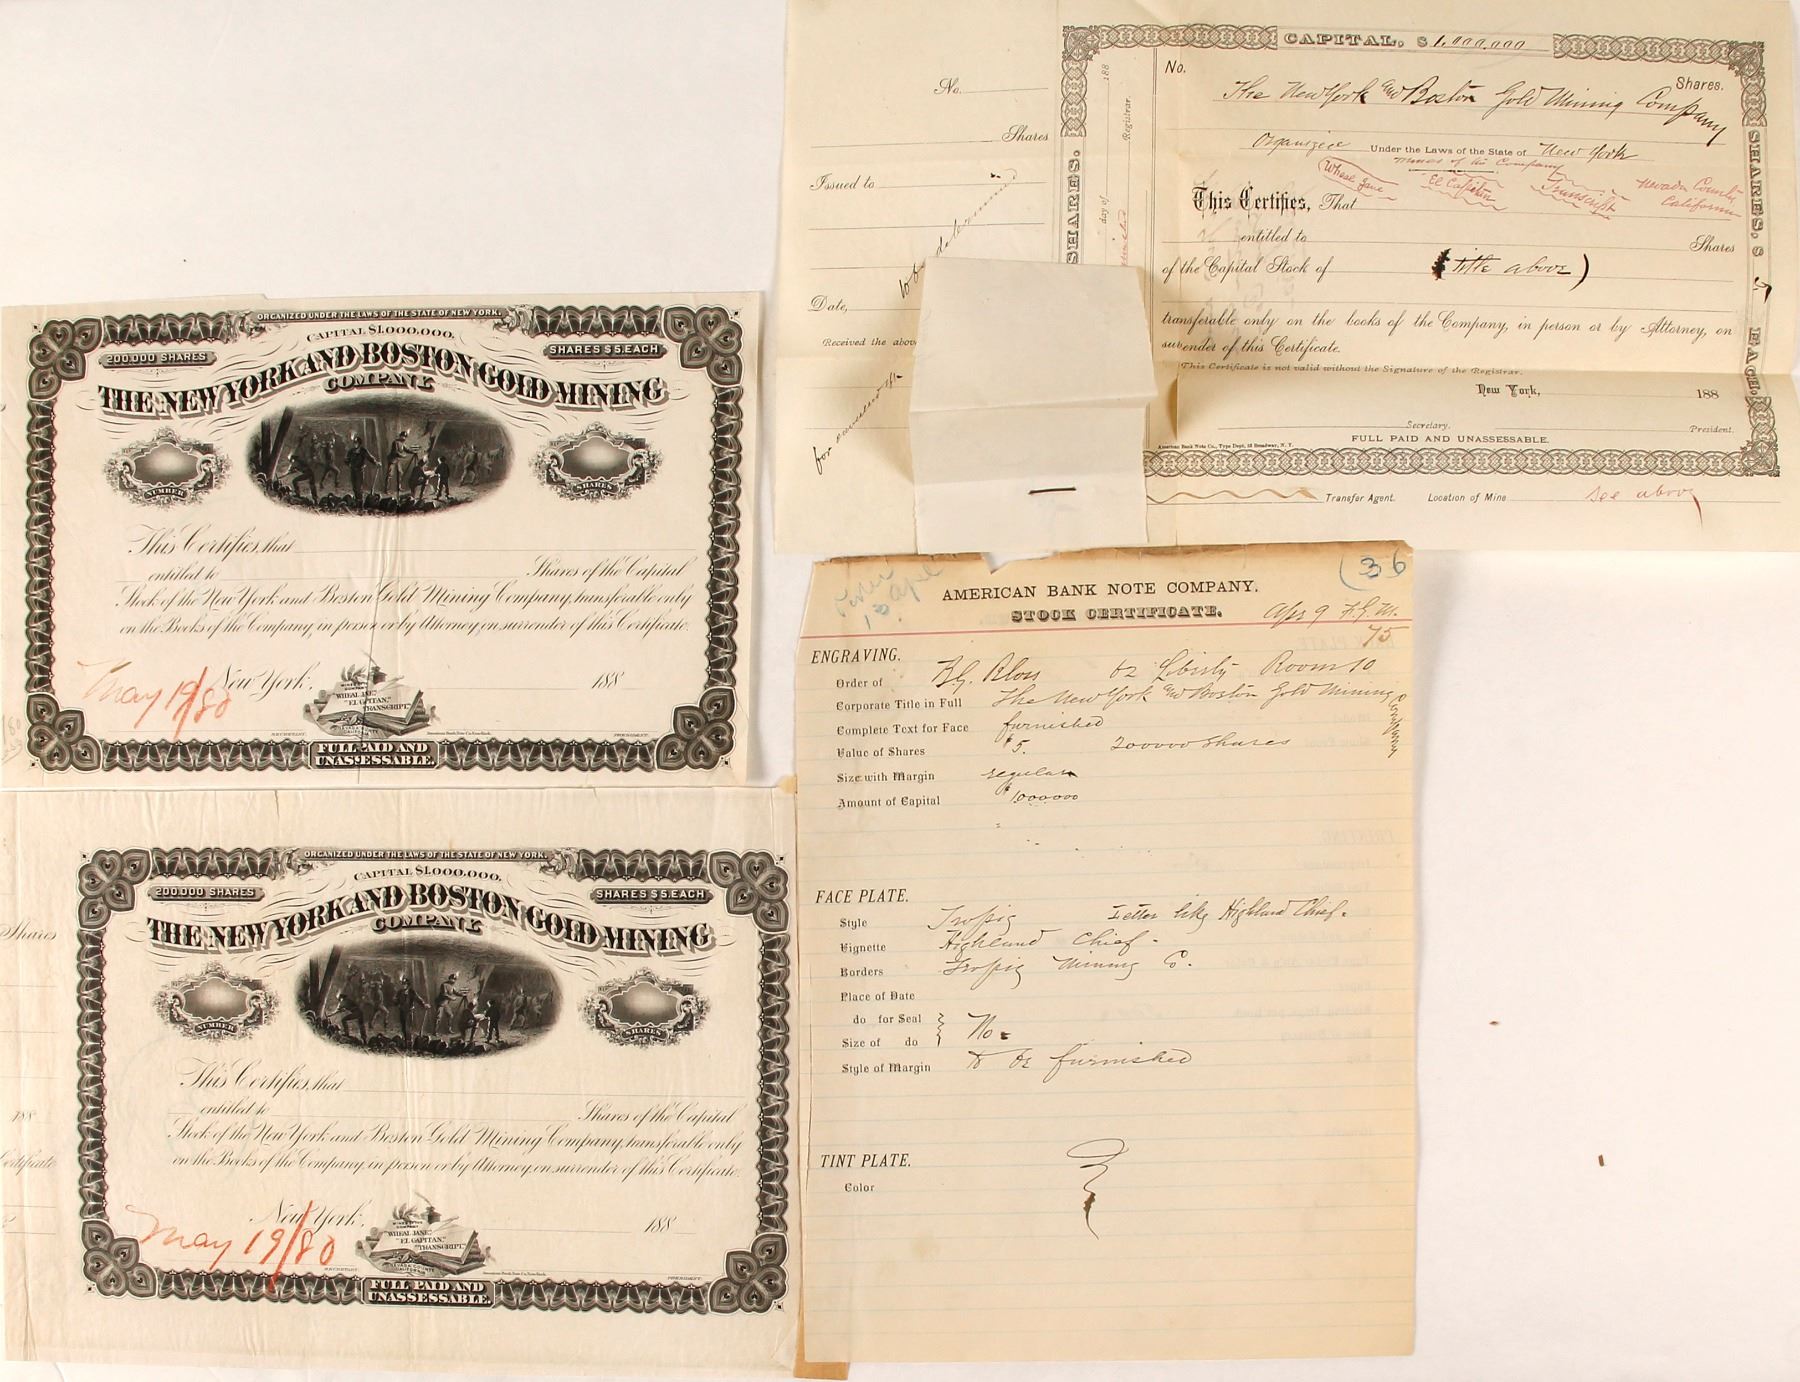 ORGANIZED UNDER THE LAWS OF THE STATE OF NEW YORK.
CAPITAL $1,000,000.
200,000 SHARES
SHARES $5. EACH
THE NEW YORK AND BOSTON GOLD MINING
COMPANY
NUMBER
SHARES
This Certifies, that
entitled to Shares of the Capital
Stock of the New York and Boston Gold Mining Company, transferable only
on the Books of the Company, in person or by Attorney, on surrender of this Certificate.
May 19/80
New York, 188
MINES OF THE
COMPANY
"WHEAL JANE,"
"EL CAPITAN,"
"TRANSCRIPT,"
NEVADA COUNTY
CALIFORNIA
SECRETARY.
American Bank Note Co. New York.
PRESIDENT.
FULL PAID AND
UNASSESSABLE.
Shares
188
Certificate
ORGANIZED UNDER THE LAWS OF THE STATE OF NEW YORK.
CAPITAL $1,000,000.
200,000 SHARES
SHARES $5. EACH
THE NEW YORK AND BOSTON GOLD MINING
COMPANY
NUMBER
SHARES
This Certifies, that
entitled to Shares of the Capital
Stock of the New York and Boston Gold Mining Company, transferable only
on the Books of the Company, in person or by Attorney, on surrender of this Certificate.
May 19/80
New York, 188
MINES OF THE
COMPANY
"WHEAL JANE,"
"EL CAPITAN,"
"TRANSCRIPT,"
NEVADA COUNTY
CALIFORNIA
SECRETARY.
American Bank Note Co. New York.
PRESIDENT.
FULL PAID AND
UNASSESSABLE.
No.
Shares
Issued to
to be determined
Date,
Received the above
for
SHARES.
day of 188
Registrar.
CAPITAL, $ 1,000,000
No. Shares.
The New York and Boston Gold Mining Company
Organized Under the Laws of the State of New York
Mines of the Company
Wheal Jane El Capitan Transcript Nevada County
California
This Certifies, That
entitled to Shares
of the Capital Stock of (title above)
transferable only on the books of the Company, in person or by Attorney, on
surrender of this Certificate.
This Certificate is not valid without the Signature of the Registrar.
New York, 188
Secretary. President.
FULL PAID AND UNASSESSABLE.
American Bank Note Co., Type Dept. 53 Broadway, N. Y.
SHARES, $ 5 EACH.
Transfer Agent. Location of Mine see above
(36
13 Apl
AMERICAN BANK NOTE COMPANY.
STOCK CERTIFICATE.
Apr 9 F.G.M.
75
ENGRAVING.
Order of Liberty Room 10
Corporate Title in Full The New York and Boston Gold Mining Company
Complete Text for Face furnished
Value of Shares $5. 200000 shares
Size with Margin regular
Amount of Capital $1000000
FACE PLATE.
Style Letter like Highland Chief.
Vignette Highland Chief.
Borders Mining Co.
Place of Date
do for Seal
Size of do No.
Style of Margin to be furnished
TINT PLATE.
Color